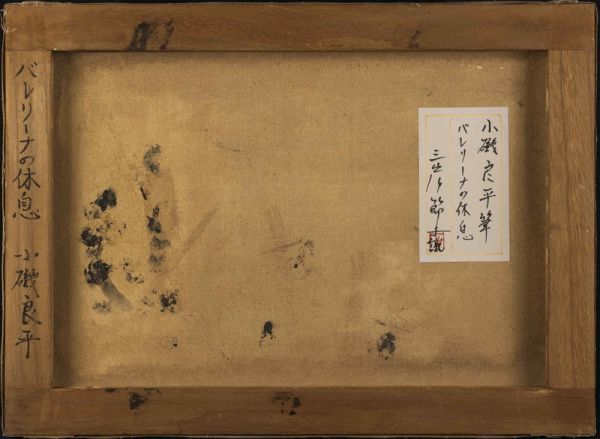 バレリーナの休息 小磯良平
小磯良平筆
バレリーナの休息
節子識